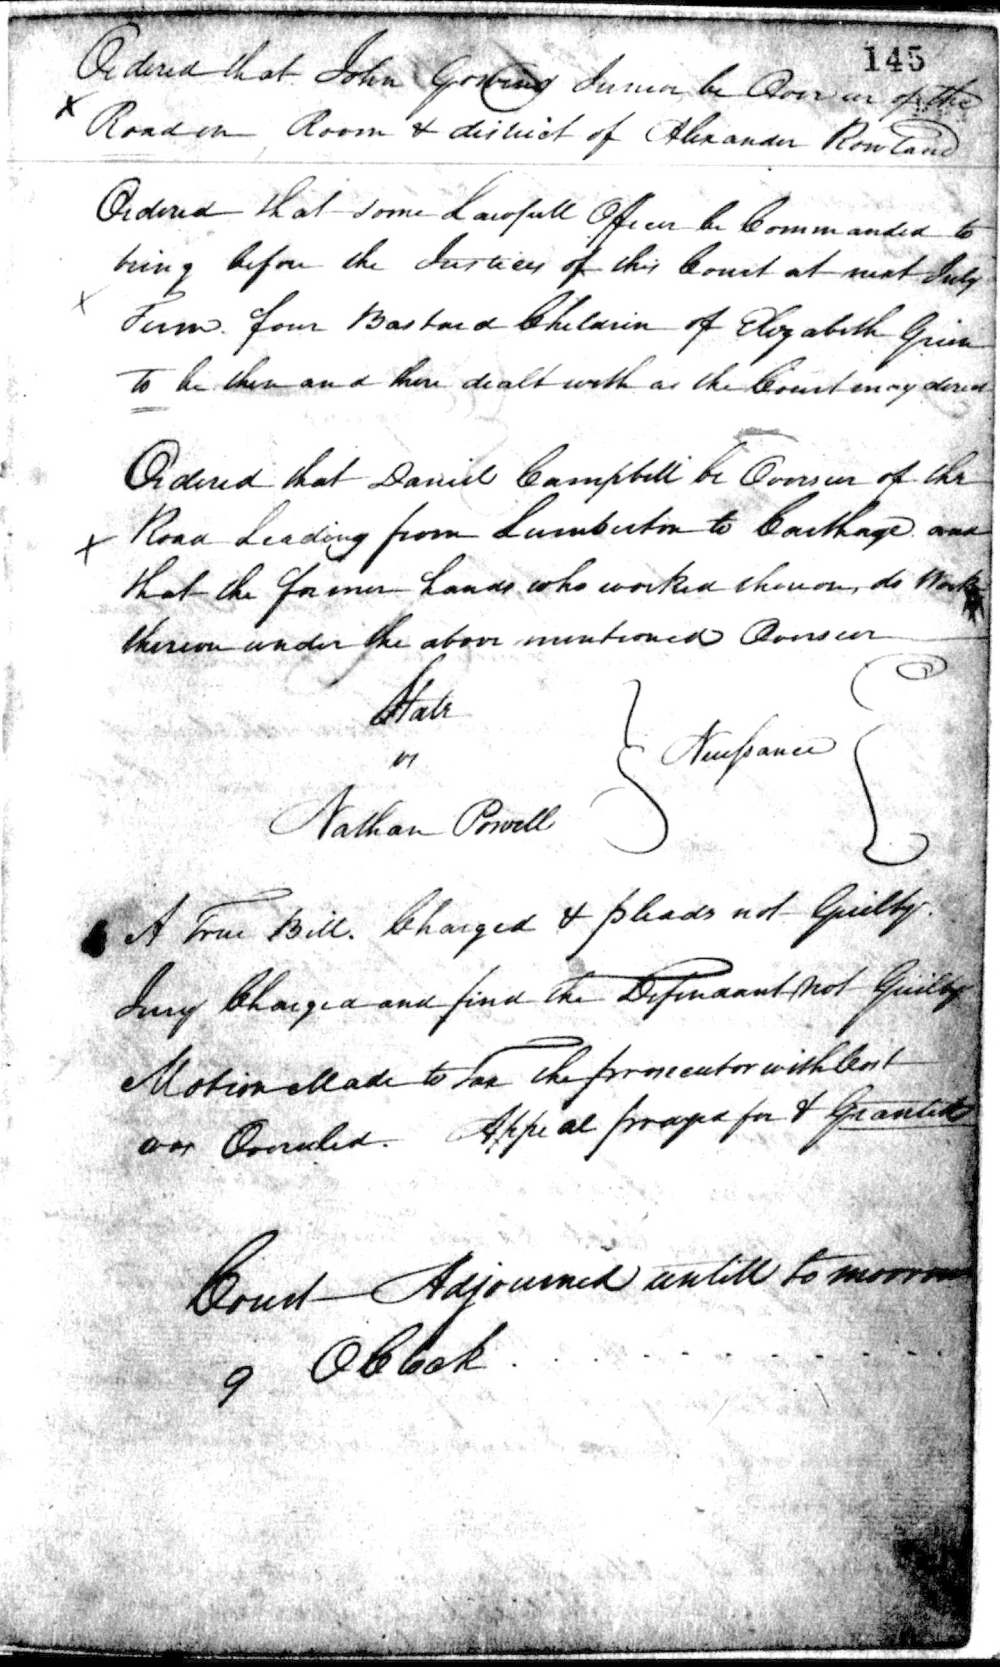 145
Ordered that John Gowing Junior be Overseer of the
Road in Room & district of Alexander Rowland
Ordered that some Lawfull Officer be Commanded to
bring before the Justices of this Court at next July
Term four Bastard Children of Elizabeth
to be then and there dealt with as the Court may direct
Ordered that Daniel Campbell be Overseer of the
Road Leading from Lumberton to Carthage and
that the former hands who worked thereon, do Work
thereon under the above mentioned Overseer
State
vs
Nathan Powell
Neussance
A True Bill. Charged & pleads not Guilty.
Jury Charged and find the Defendant Not Guilty
Motion Made to Tax the prosecutor with Cost
was Overuled. Appeal prayed for & Granted
Court Adjourned untill tomorrow
9 OClock